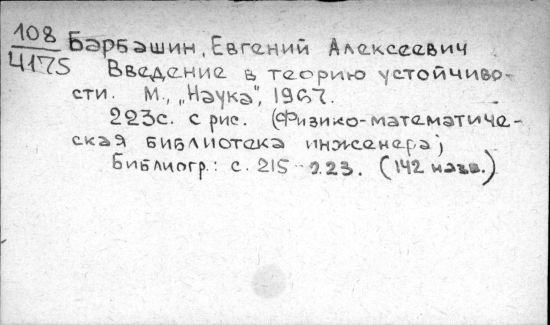 108
4175
Барбашин, Евгений Алексеевич
Введение в теорию устойчиво-
сти. М., „Наука", 1967.
223с. с рис. (Физико-математиче-
ская библиотека инженера)
Библиогр.: с. 215-223. (142 назв.)